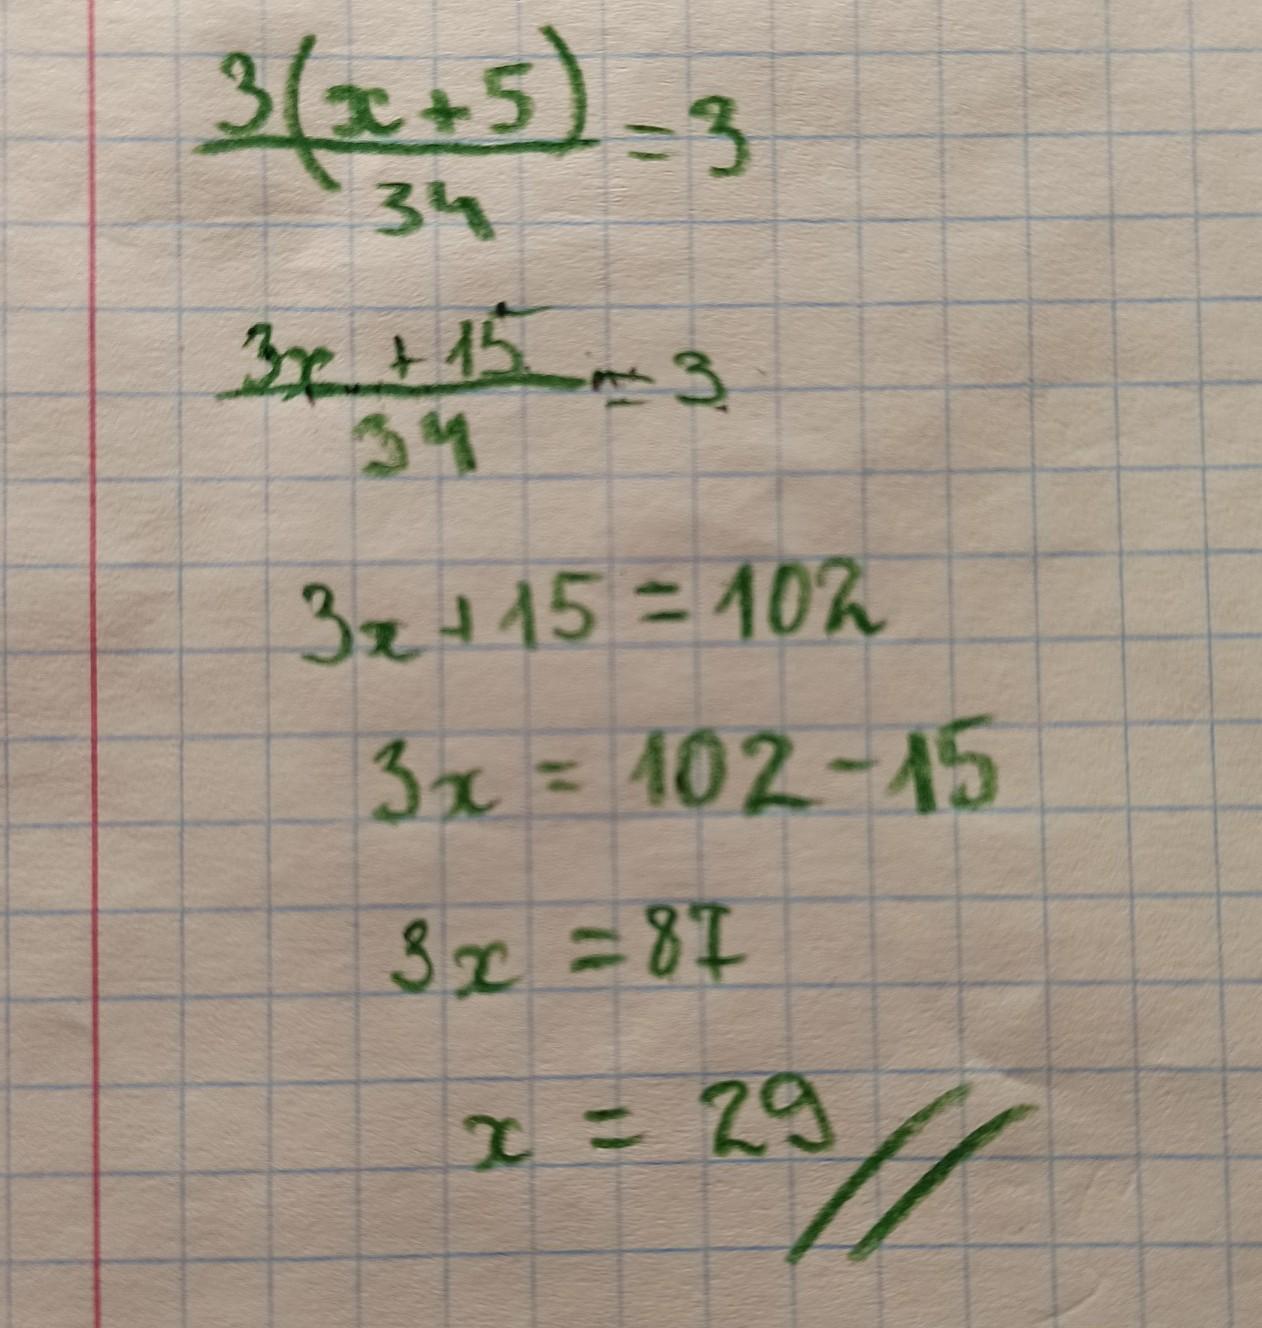 3(x+5)/34 = 3
3x + 15/34 = 3
3x + 15 = 102
3x = 102 - 15
3x = 87
x = 29 //